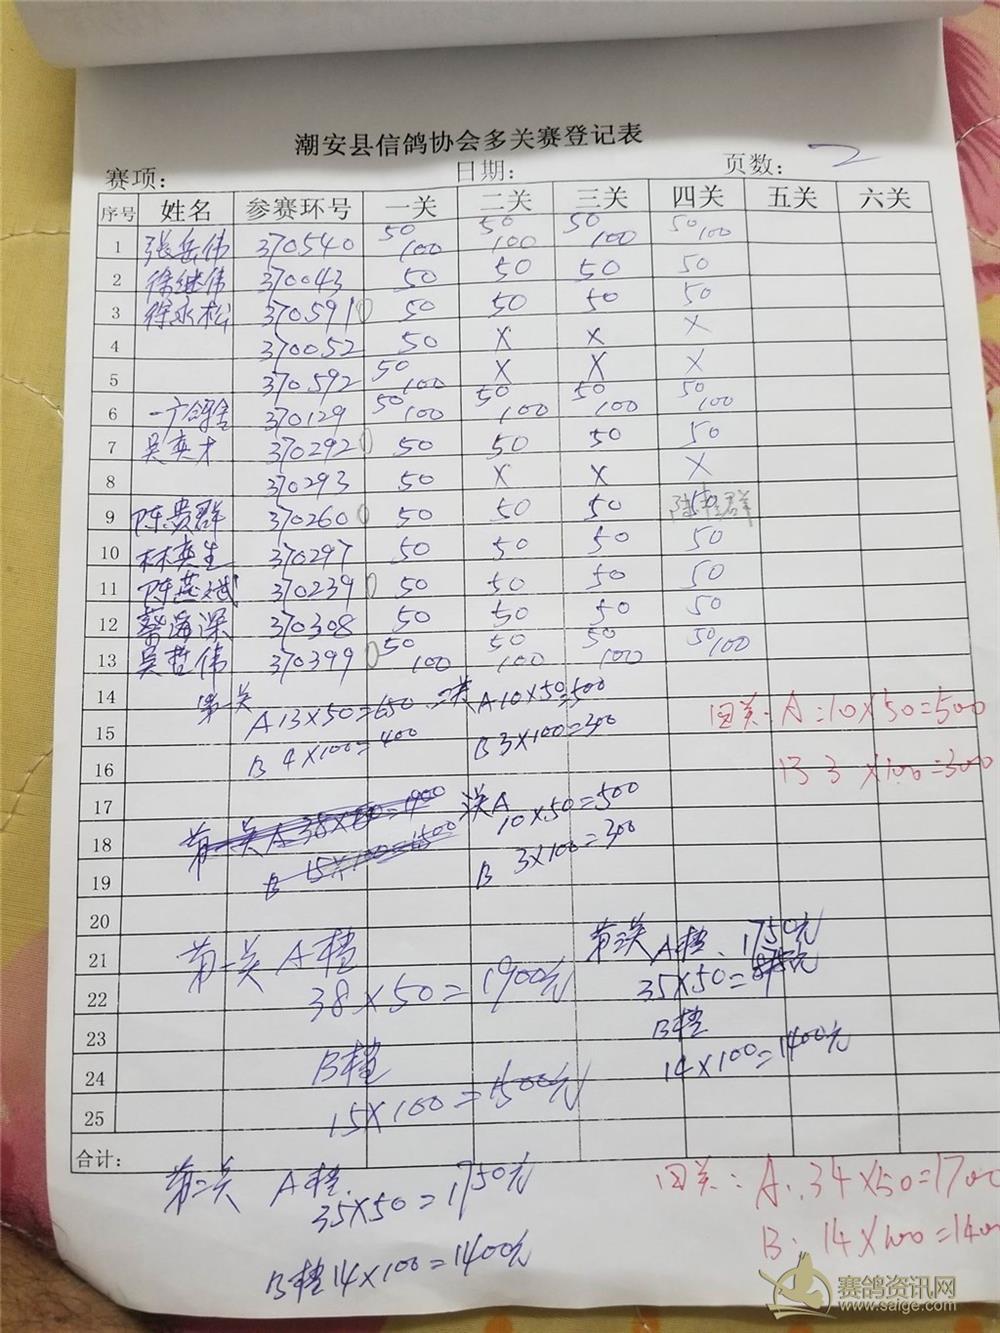 潮安县信鸽协会多关赛登记表
赛项: 日期: 页数: 2
序号 姓名 参赛环号 一关 二关 三关 四关 五关 六关
1 张岳伟 370540 50 100 50 100 50 100 50 100
2 徐继伟 370043 50 50 50 50
3 徐永松 370591 50 50 50 50
4 370052 50 X X X
5 370592 50 100 X X X
6 一广鸽舍 370129 50 100 50 100 50 100 50 100
7 吴奕才 370292 50 50 50 50
8 370293 50 X X X
9 陈贵群 370260 50 50 50 50
10 林奕生 370297 50 50 50 50
11 陈燕斌 370239 50 50 50 50
12 蔡海深 370308 50 50 50 50
13 吴哲伟 370399 50 100 50 100 50 100 50 100
14 第一关
15 A 13×50=650 二关 A 10×50=500 四关. A:10×50=500
16 B 4×100=400 B 3×100=300 B 3×100=300
17
18 第一关 A 38×50=1900 A 10×50=500
19 B 15×100=1500 B 3×100=300
20
21 第一关 A档 第三关 A档. 1750元
22 38×50=1900元 35×50=
23 B档
24 B档 14×100=1400元
25 15×100=1500元
合计:
第二关 A档. 35×50=1750元
B档 14×100=1400元
四关: A. 34×50=1700
B. 14×100=140
赛鸽资讯网
www.saige.com